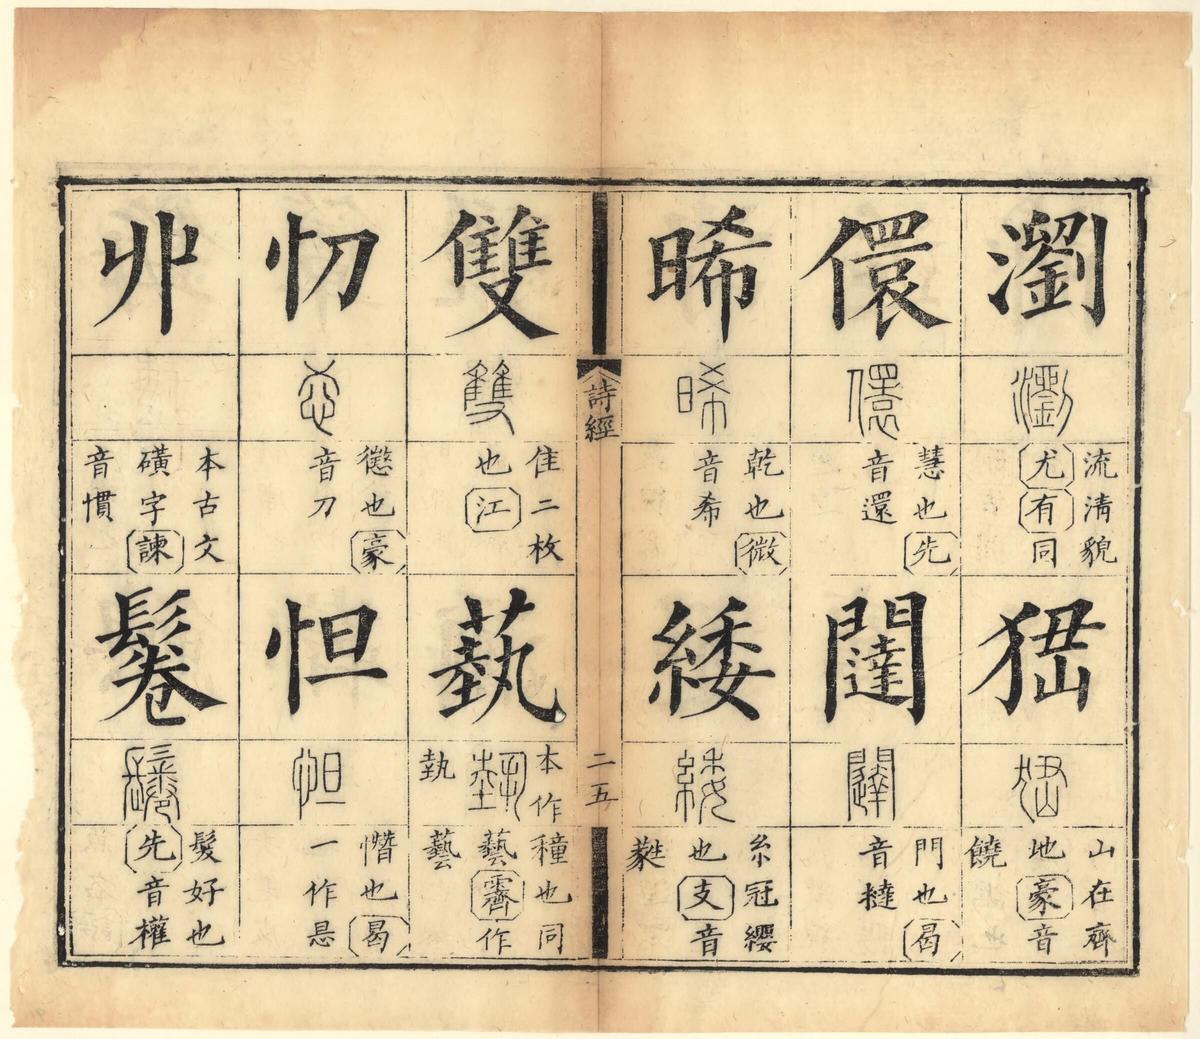 瀏
瀏
流清貌
尤有同
峱
峱
山在齊
地豪音
饒
儇
儇
慧也先
音還
闥
闥
門也曷
音撻
晞
晞
乾也微
音希
緌
緌
糸冠纓
也支音
蕤
詩經
二五
雙
雙
隹二枚
也江
蓺
本作
埶
執
種也同
藝霽作
藝
忉
懲也豪
音刀
怛
怛
憯也曷
一作
丱
本古文
磺字諫
音慣
鬈
鬈
髮好也
先音權